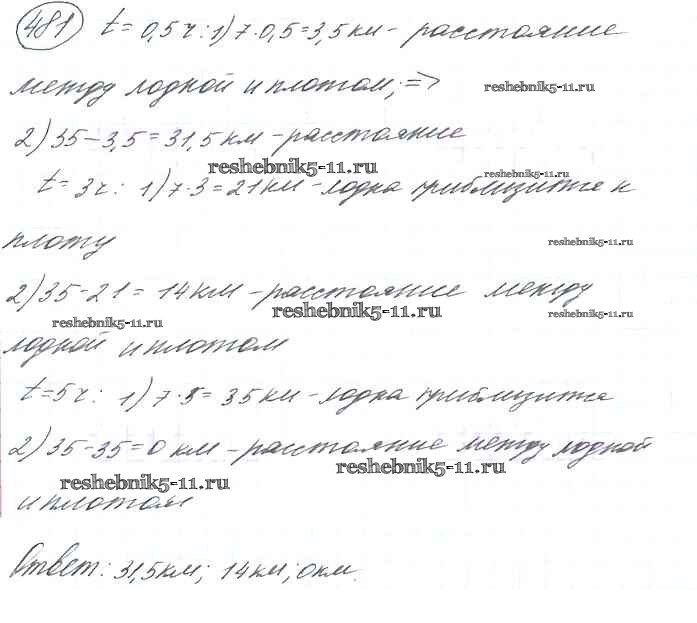 481 t = 0,5 ч: 1) 7·0,5 = 3,5 км - расстояние
между лодкой и плотом; =>
reshebnik5-11.ru
2) 35 - 3,5 = 31,5 км - расстояние
reshebnik5-11.ru
reshebnik5-11.ru
t = 3 ч: 1) 7·3 = 21 км - лодка приблизится к
плоту
reshebnik5-11.ru
2) 35 - 21 = 14 км - расстояние между
reshebnik5-11.ru
reshebnik5-11.ru
reshebnik5-11.ru
лодкой и плотом
t = 5 ч: 1) 7·5 = 35 км - лодка приблизится
2) 35 - 35 = 0 км - расстояние между лодкой
reshebnik5-11.ru
reshebnik5-11.ru
и плотом
Ответ: 31,5 км; 14 км; 0 км.